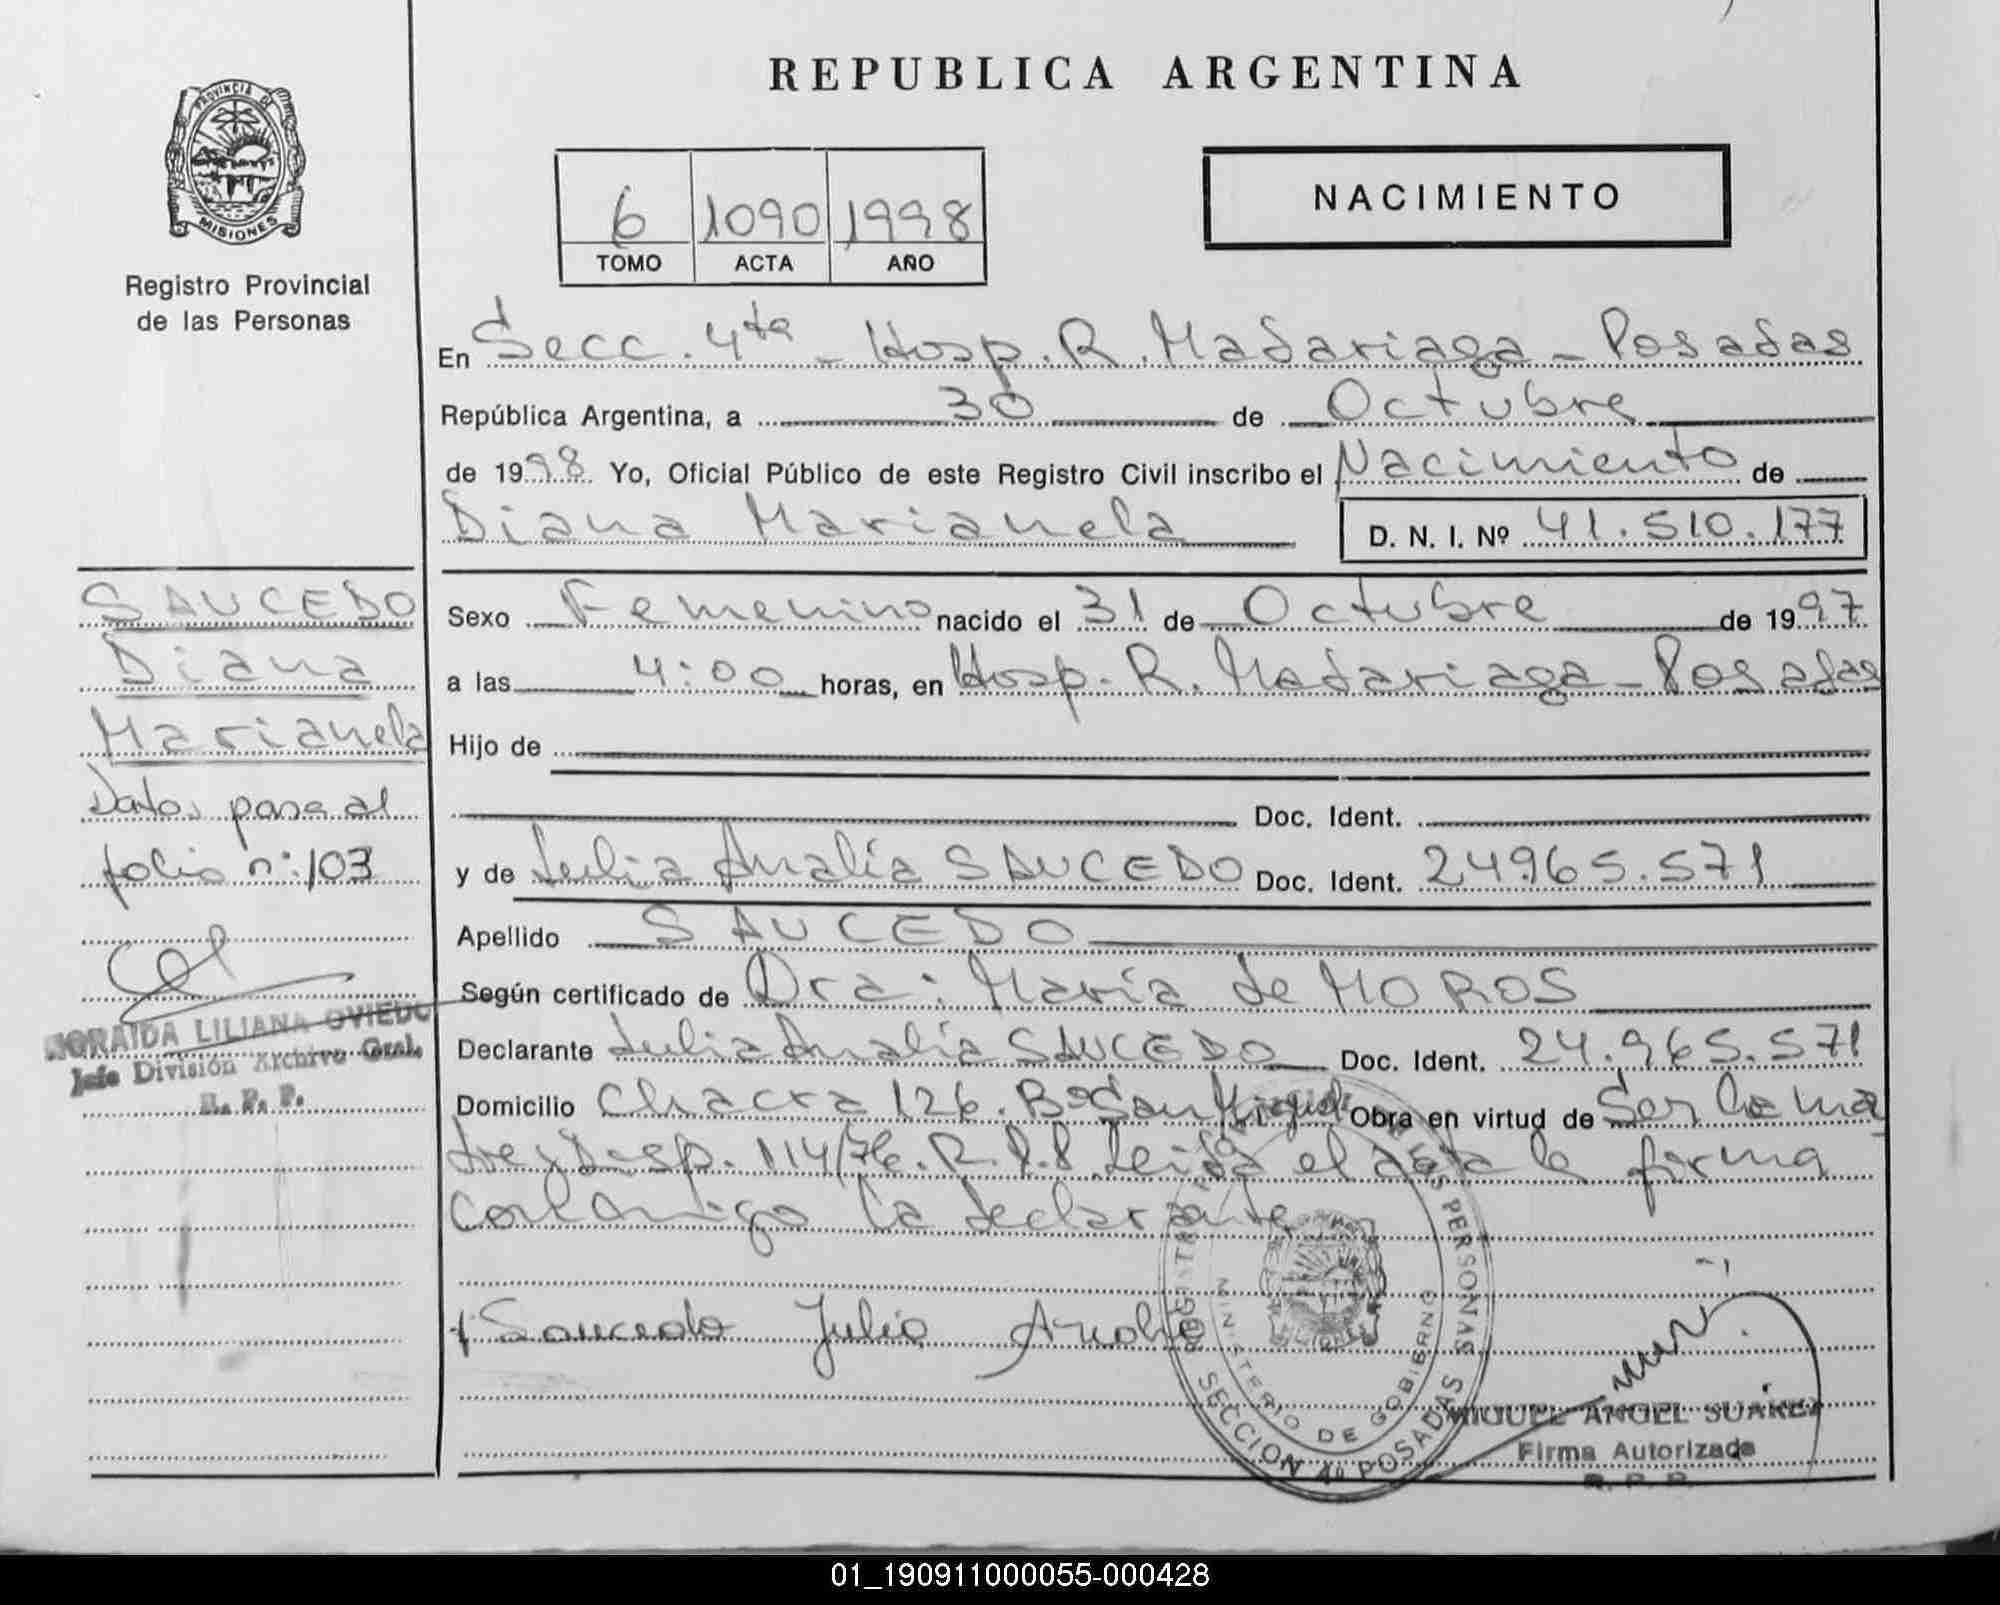 REPUBLICA ARGENTINA
PROVINCIA DE
MISIONES
Registro Provincial
de las Personas
6 1090 1998
TOMO ACTA AÑO
NACIMIENTO
En Secc. 4ta - Hosp. R. Madariaga - Posadas
República Argentina, a 30 de Octubre
de 1998. Yo, Oficial Público de este Registro Civil inscribo el Nacimiento de
Diana Marianela D. N. I. Nº 41.510.177
SAUCEDO
Diana
Marianela
Datos pasa al
folio nº: 103
ZORAIDA LILIANA OVIEDO
Jefe División Archivo Gral.
R. P. P.
Sexo Femenino nacido el 31 de Octubre de 1997
a las 4:00 horas, en Hosp. R. Madariaga - Posadas
Hijo de
Doc. Ident.
y de Julia Analía SAUCEDO Doc. Ident. 24.965.571
Apellido SAUCEDO
Según certificado de Dra: María de MOROS
Declarante Julia Analía SAUCEDO Doc. Ident. 24.965.571
Domicilio Chacra 126. Bº San Miguel Obra en virtud de Ser la ma
dre y Disp. 114/76. R.P.P. Leida el acta la firma
conmigo la declarante
Saucedo Julia Analia
LAS PERSONAS
MINISTERIO DE GOBIERNO
SECCION 4º POSADAS
MIGUEL ANGEL SUAREZ
Firma Autorizada
R. P. P.
01_190911000055-000428